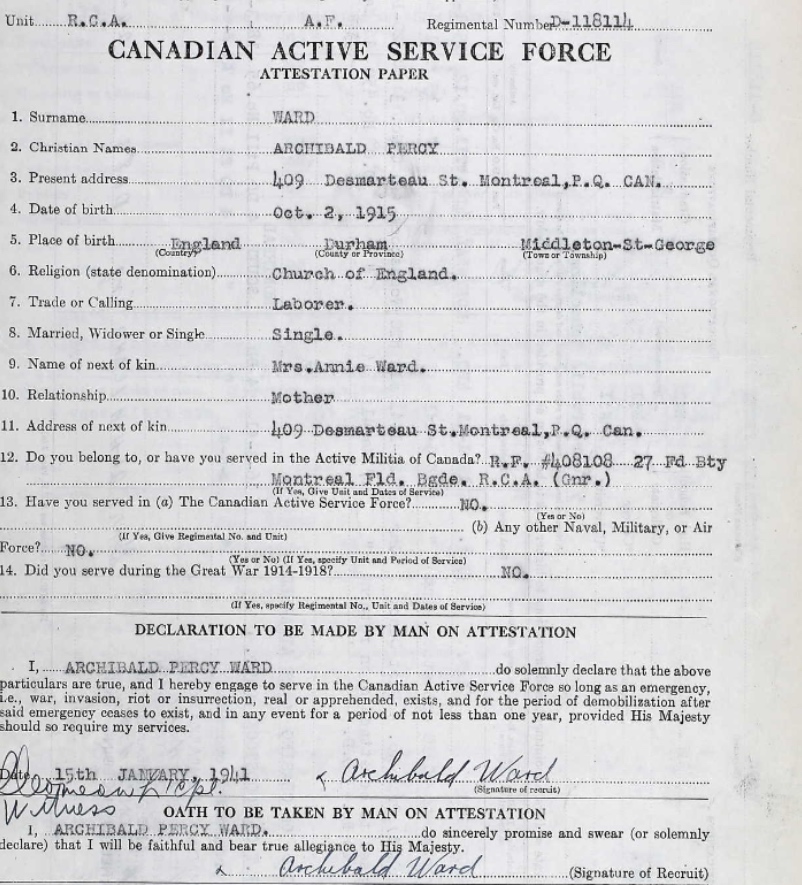 Unit R.C.A. A.F. Regimental Number D-118114
CANADIAN ACTIVE SERVICE FORCE
ATTESTATION PAPER
1. Surname WARD
2. Christian Names ARCHIBALD PERCY
3. Present address 409 Desmarteau St. Montreal,P.Q. CAN.
4. Date of birth Oct. 2, 1915
5. Place of birth England Durham Middleton-St-George
(Country) (County or Province) (Town or Township)
6. Religion (state denomination) Church of England.
7. Trade or Calling Laborer.
8. Married, Widower or Single Single.
9. Name of next of kin Mrs.Annie Ward.
10. Relationship Mother
11. Address of next of kin 409 Desmarteau St.Montreal,P.Q. Can.
12. Do you belong to, or have you served in the Active Militia of Canada? R.F. #408108 27 Fd Bty
Montreal Fld. Bgde. R.C.A. (Gnr.)
(If Yes, Give Unit and Dates of Service)
13. Have you served in (a) The Canadian Active Service Force? NO.
(Yes or No)
(b) Any other Naval, Military, or Air
(If Yes, Give Regimental No. and Unit)
Force? NO.
(Yes or No) (If Yes, specify Unit and Period of Service)
14. Did you serve during the Great War 1914-1918? NO.
(If Yes, specify Regimental No., Unit and Dates of Service)
DECLARATION TO BE MADE BY MAN ON ATTESTATION
I, ARCHIBALD PERCY WARD do solemnly declare that the above
particulars are true, and I hereby engage to serve in the Canadian Active Service Force so long as an emergency,
i.e., war, invasion, riot or insurrection, real or apprehended, exists, and for the period of demobilization after
said emergency ceases to exist, and in any event for a period of not less than one year, provided His Majesty
should so require my services.
Date 15th JANUARY, 1941 x Archibald Ward
(Signature of recruit)
Cpl.
Witness
OATH TO BE TAKEN BY MAN ON ATTESTATION
I, ARCHIBALD PERCY WARD. do sincerely promise and swear (or solemnly
declare) that I will be faithful and bear true allegiance to His Majesty.
x Archibald Ward (Signature of Recruit)